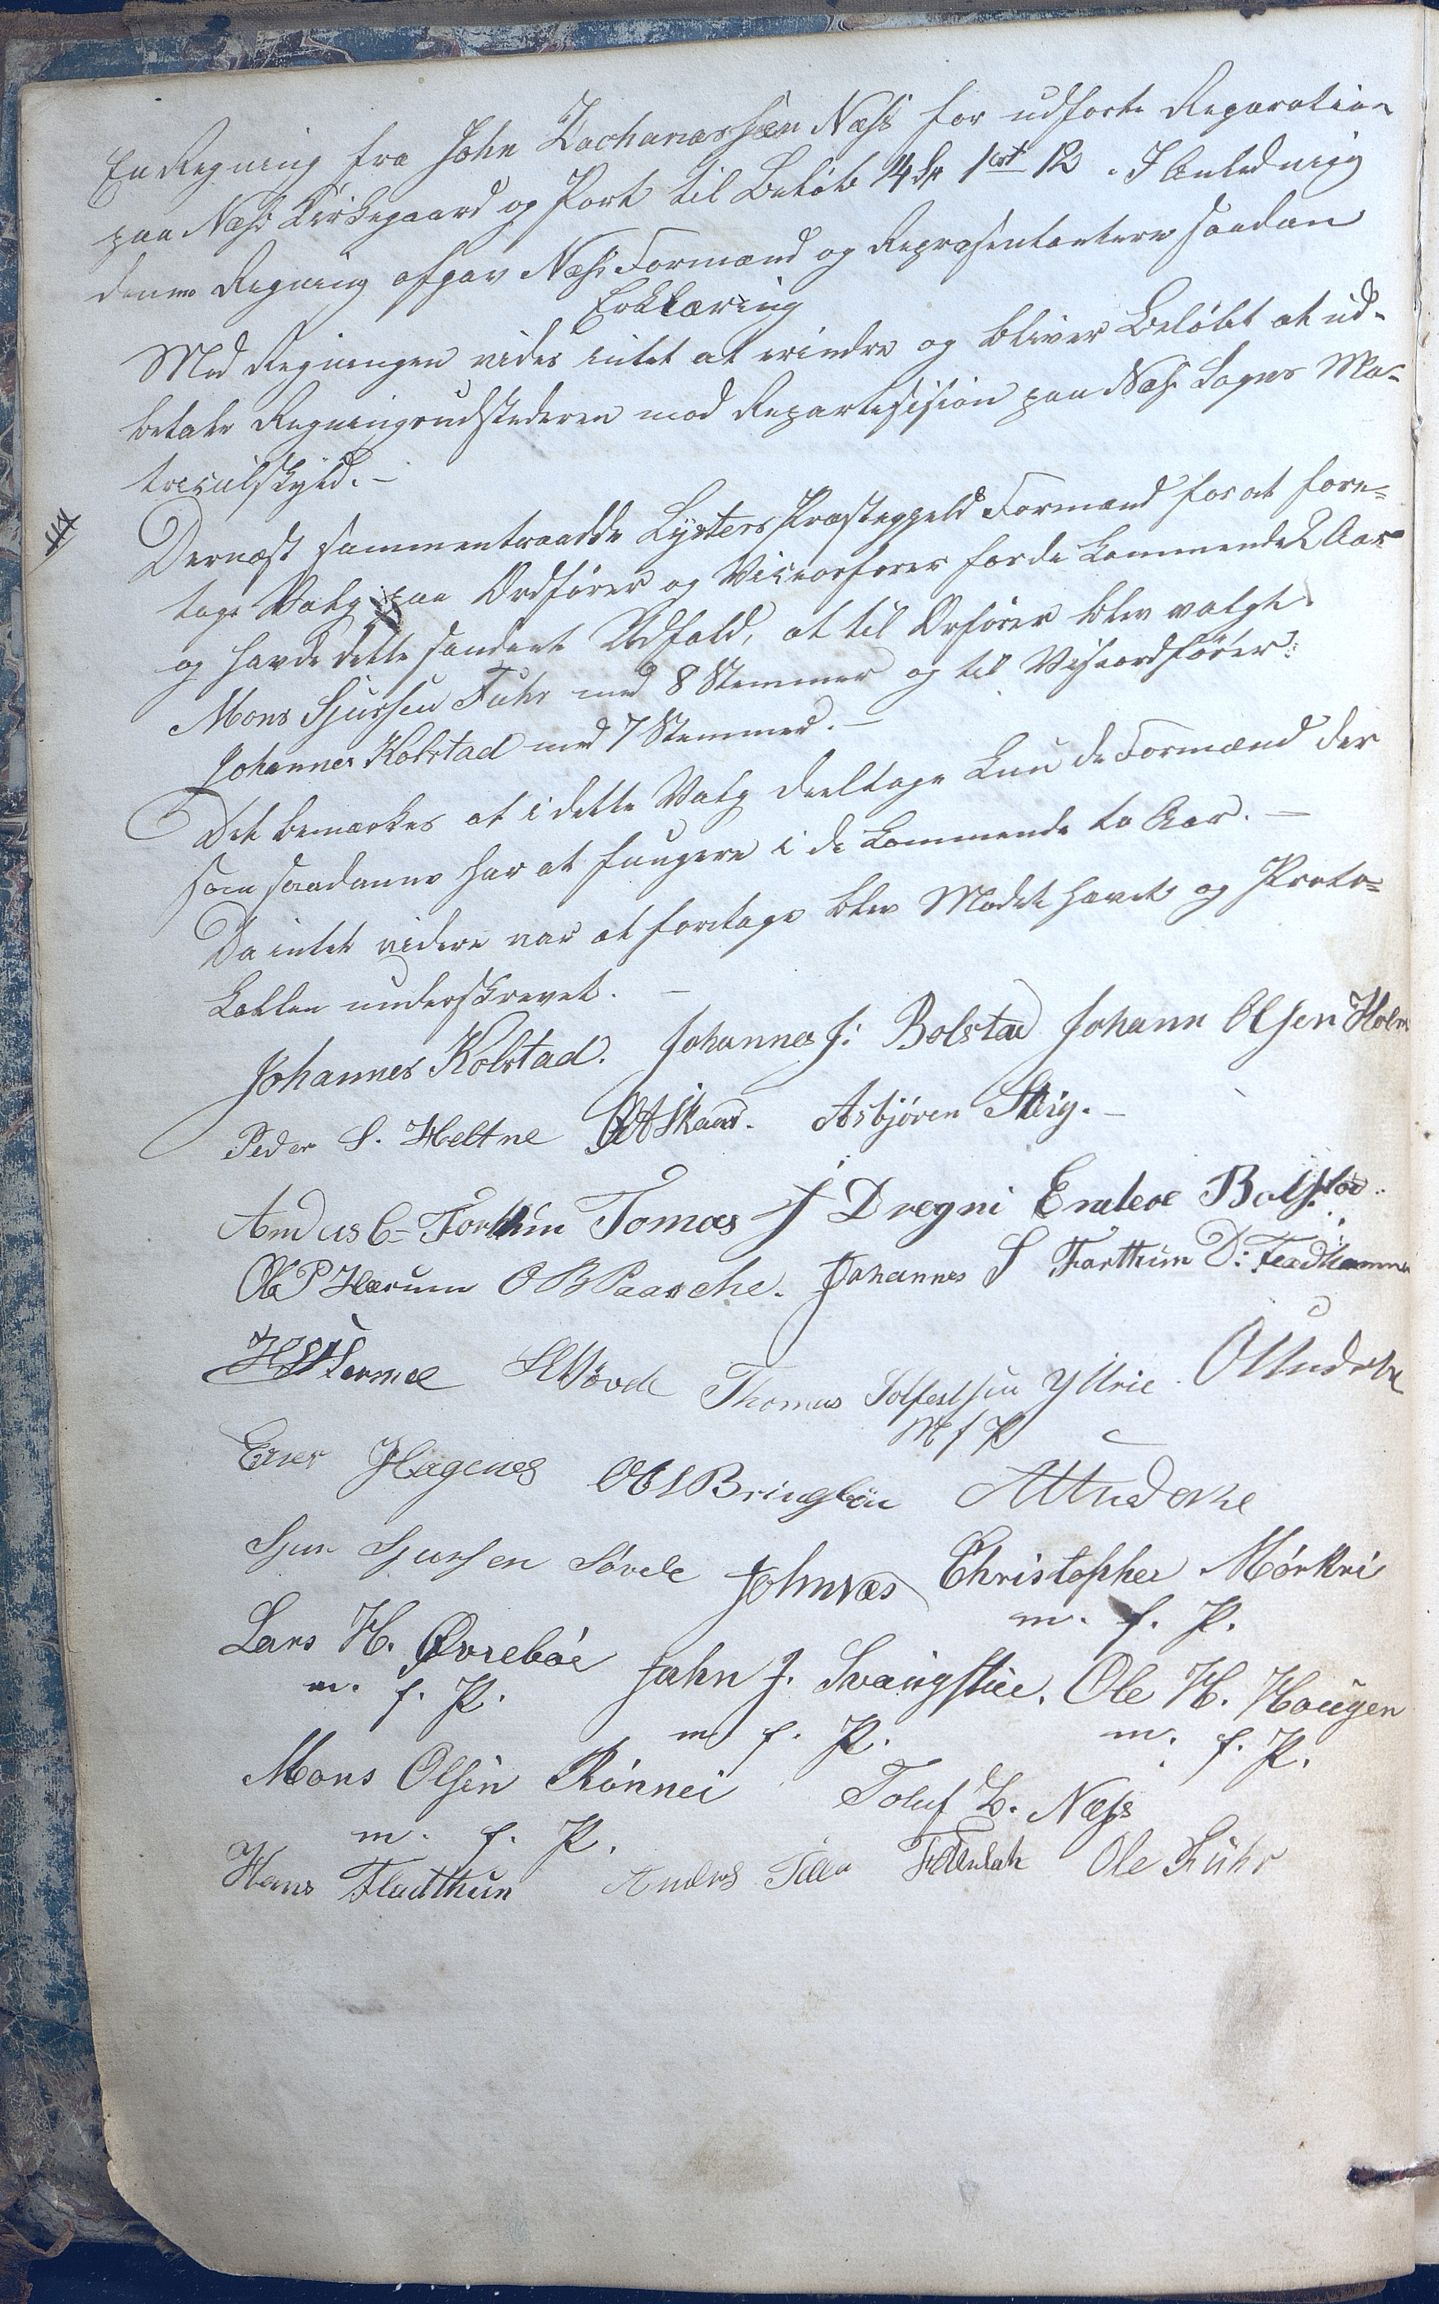 En Regning fra John Zachariassen Næss for udførte Reparation
paa Næss Kirkegaard og Port til Beløb 4 dr 1 ort 12 . I Anledning
denne Regning afgav Næss Formænd og Repræsentantere saadan
Erklæring
Mod Regningen vides intet at erindre og bliver Beløbet at ud-
betale Regningsudstederen mod Repartisision paa Næss Sogns Ma-
triculskyld. -
Dernæst sammentraadde Lysters Præstegjeld Formænd for at fore-
tage Valg paa Ordfører og Viceorfører for de kommende 2 Aar
og havde dette saadant Udfald, at til Orfører blev valgt
Mons Sjursen Fuhr med 8 Stemmer og til Viseordfører:
Johannes Kolstad med 7 Stemmer. -
Det bemærkes at i dette Valg deeltage kun de Formænd der
som saadanne har at fungere i de kommende to Aar. -
Da intet videre var at foretage blev Mødet hævet og Proto-
kollen underskrevet. -
Johannes Kolstad. Johannes J: Bolstad Johann Olsen Holm
Peder S. Heltne Skaar. Asbjøren Steig. -
Forthun Tomas J Dregni Bolstad
Ole P Hærum O B Paasche. Johannes S Forthun D:
Søvde Thomas Solfestsen Yttrie
M f P
Hagenes Bringebøe
Sjur Sjursen Søvde John Næs Christopher Mørkri
m. f. P.
Lars H. Øvrebøe John J. Ole H. Hougen
m. f. P. m f. P. m. f. P.
Mons Olsen Rønnei Toluf Z. Næss
m. f. P.
Hans Fladthun Anders Ole Fuhr